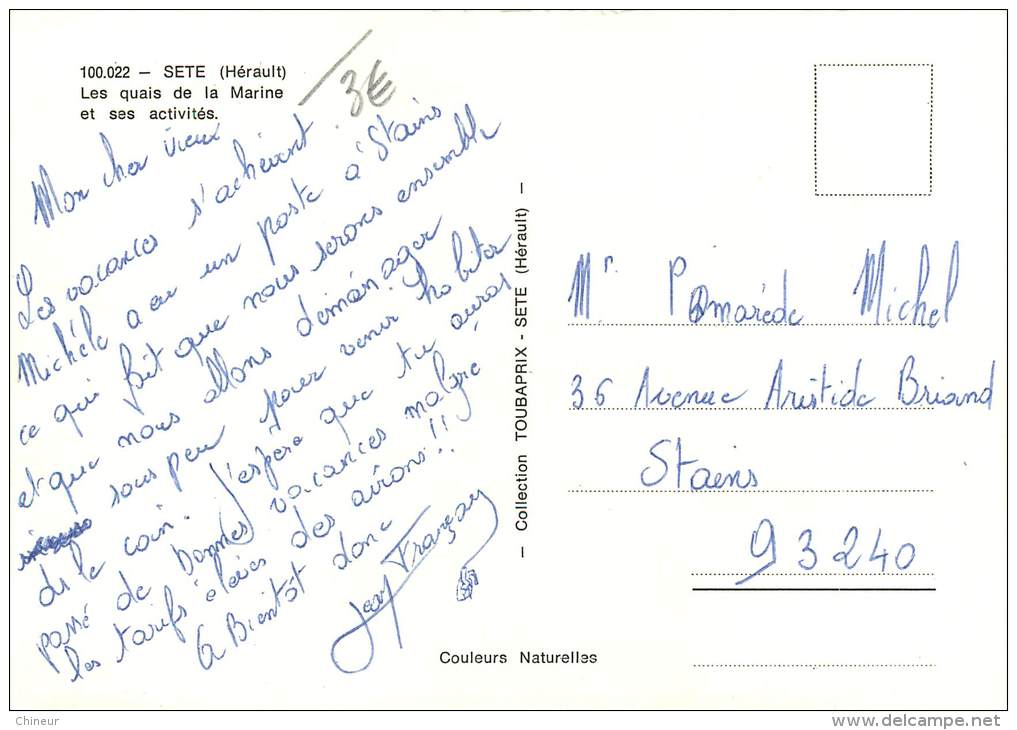 100.022 — SETE (Hérault)
Les quais de la Marine
et ses activités.
3€
Mon cher vieux
Les vacances s'achèvent
Michèle a eu un poste à Stains
ce qui fait que nous serons ensemble
et que nous allons déménager
sous peu pour venir habiter
ds le coin. J'espère que tu auras
passé de bonnes vacances malgré
les tarifs élevés des avirons..!!
A Bientôt donc
Jean François
— Collection TOUBAPRIX - SETE (Hérault) —
Mr. Pomarède Michel
36 Avenue Aristide Briand
Stains
93240
Couleurs Naturelles
Chineur
delcampe.net